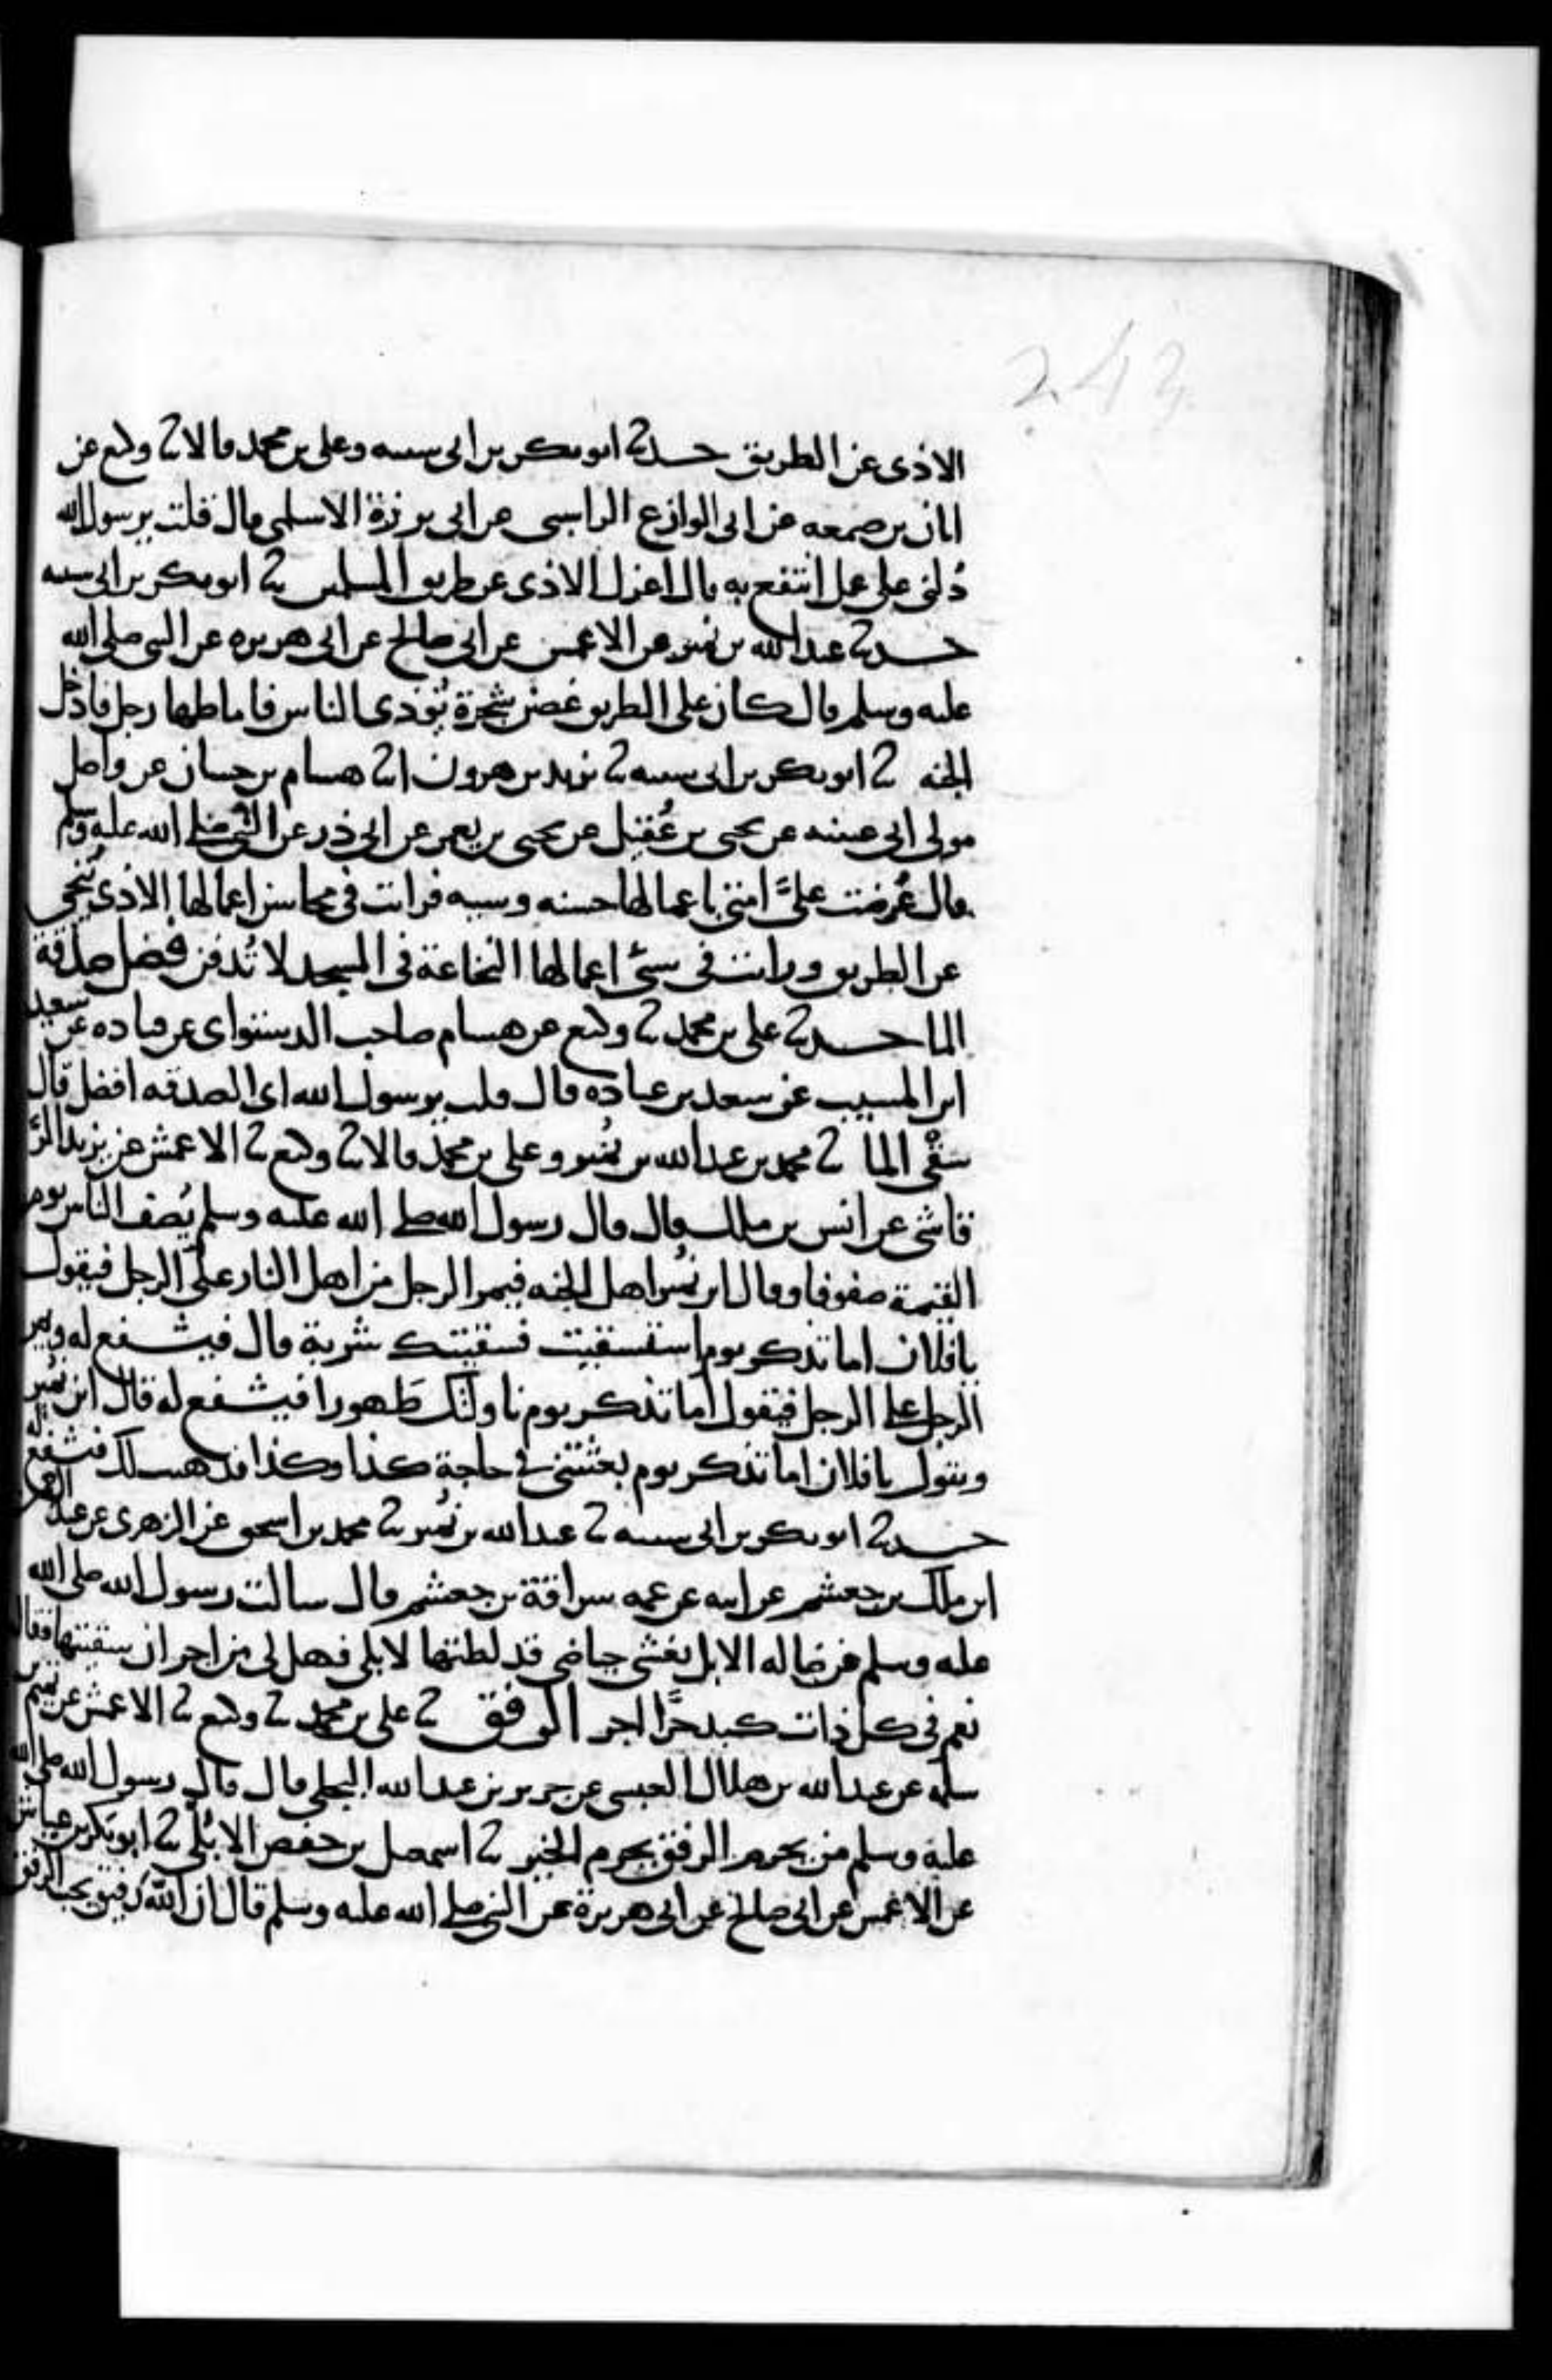 243
الاذى عن الطريق حدثنا ابو بكر بن ابى شيبه وعلى بن محمد قالا ثنا وكيع عن
ابان بن صمعه عن ابى الوازع الراسبى عن ابى برزة الاسلمى قال قلت يرسول الله
دُلنى على عمل انتفع به قال اعزل الاذى عن طريق المسلمين ثنا ابو بكر بن ابى شيبه
حدثنا عبد الله بن نمير عن الاعمش عن ابى صالح عن ابى هريره عن النبى صلى الله
عليه وسلم قال كان على الطريق غصن شجرة يُوذى الناس فاماطها رجل فادخل
الجنه ثنا ابو بكر بن ابى شيبه ثنا يزيد بن هرون انا هشام بن حسان عن واصل
مولى ابى عيينه عن يحيى بن عُقيل عن يحيى بن يعمر عن ابى ذر عن النبى صلى الله عليه وسلم
قال عُرضت علىَّ امتى باعمالها حسنه وسيه فرايت فى محاسن اعمالها الاذى يُنحى
عن الطريق ورايت فى سىّء اعمالها النخاعة فى المسجد لا تُدفن فضل صدقة
الما حدثنا على بن محمد ثنا وكيع عن هشام صاحب الدستواى عن قتاده عن سعيد
ابن المسيب عن سعد بن عباده قال قلت يرسول الله اى الصدقه افضل قال
سقْى الما ثنا محمد بن عبد الله بن نُمير وعلى بن محمد قالا ثنا وكيع ثنا الاعمش عن يزيد الرَّ
قاشى عن انس بن ملك قال قال رسول الله صلى الله عليه وسلم يُصف الناس يوم
القيمة صفوفا وقال ابن نُمير اهل الجنه فيمر الرجل من اهل النار على الرجل فيقول
يا فلان اما تذكر يوم استسقيت فسقيتك شربة قال فيشفع له ويمر
الرجل على الرجل فيقول اما تذكر يوم ناولتك طَهورا فيشفع له قال ابن نُمير
ويقول يا فلان اما تذكر يوم بعثتنى فى حاجة كذا وكذا فذهبت لك فيشفع له
حدثنا ابو بكر بن ابى شيبه ثنا عبد الله بن نُمير ثنا محمد بن اسحق عن الزهرى عن عبد الرحمن
ابن ملك بن جعشم عن ابيه عن عمه سراقة بن جعشم قال سالت رسول الله صلى الله
عليه وسلم عن ضاله الابل تغشى حياضى قد لطتها لابلى فهل لى من اجر ان سقيتها فقال
نعم فى كل ذات كبد حرَّا اجر الرفق ثنا على بن محمد ثنا وكيع ثنا الاعمش عن تميم بن
سلمه عن عبد الله بن هلال العبسى عن جرير بن عبد الله البجلى قال قال رسول الله صلى الله
عليه وسلم من يحرم الرفق يحرم الخير ثنا اسمعيل بن حفص الابُلّى ثنا ابو بكر بن عياش
عن الاعمش عن ابى صالح عن ابى هريرة عن النبى صلى الله عليه وسلم قال ان الله رفيق يحب الرفق